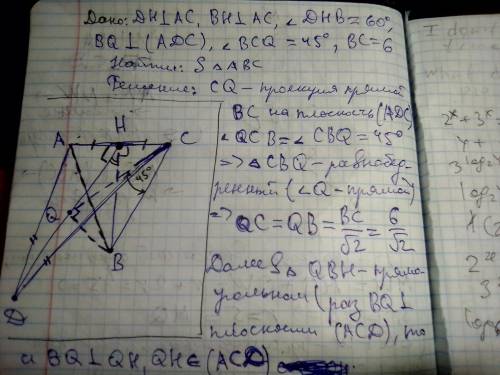 Дано: DH⊥AC, BH⊥AC, ∠DHB=60°,
BQ⊥(ADC), ∠BCQ=45°, BC=6
Найти: S△ABC
Решение: CQ - проекция прямой
BC на плоскость (ADC)
∠QCB=∠CBQ=45°
=> △CBQ-равнобед-
ренный (∠Q-прямой)
=> QC=QB=BC/√2=6/√2
Далее в △ QBH-прямо-
угольном (раз BQ⊥
плоскости (ACD), то
и BQ⊥QH, QH∈(ACD)
A H C
45°
Q
B
D
I
2ˣ+3ˣ
4+
3
log₂
log₂